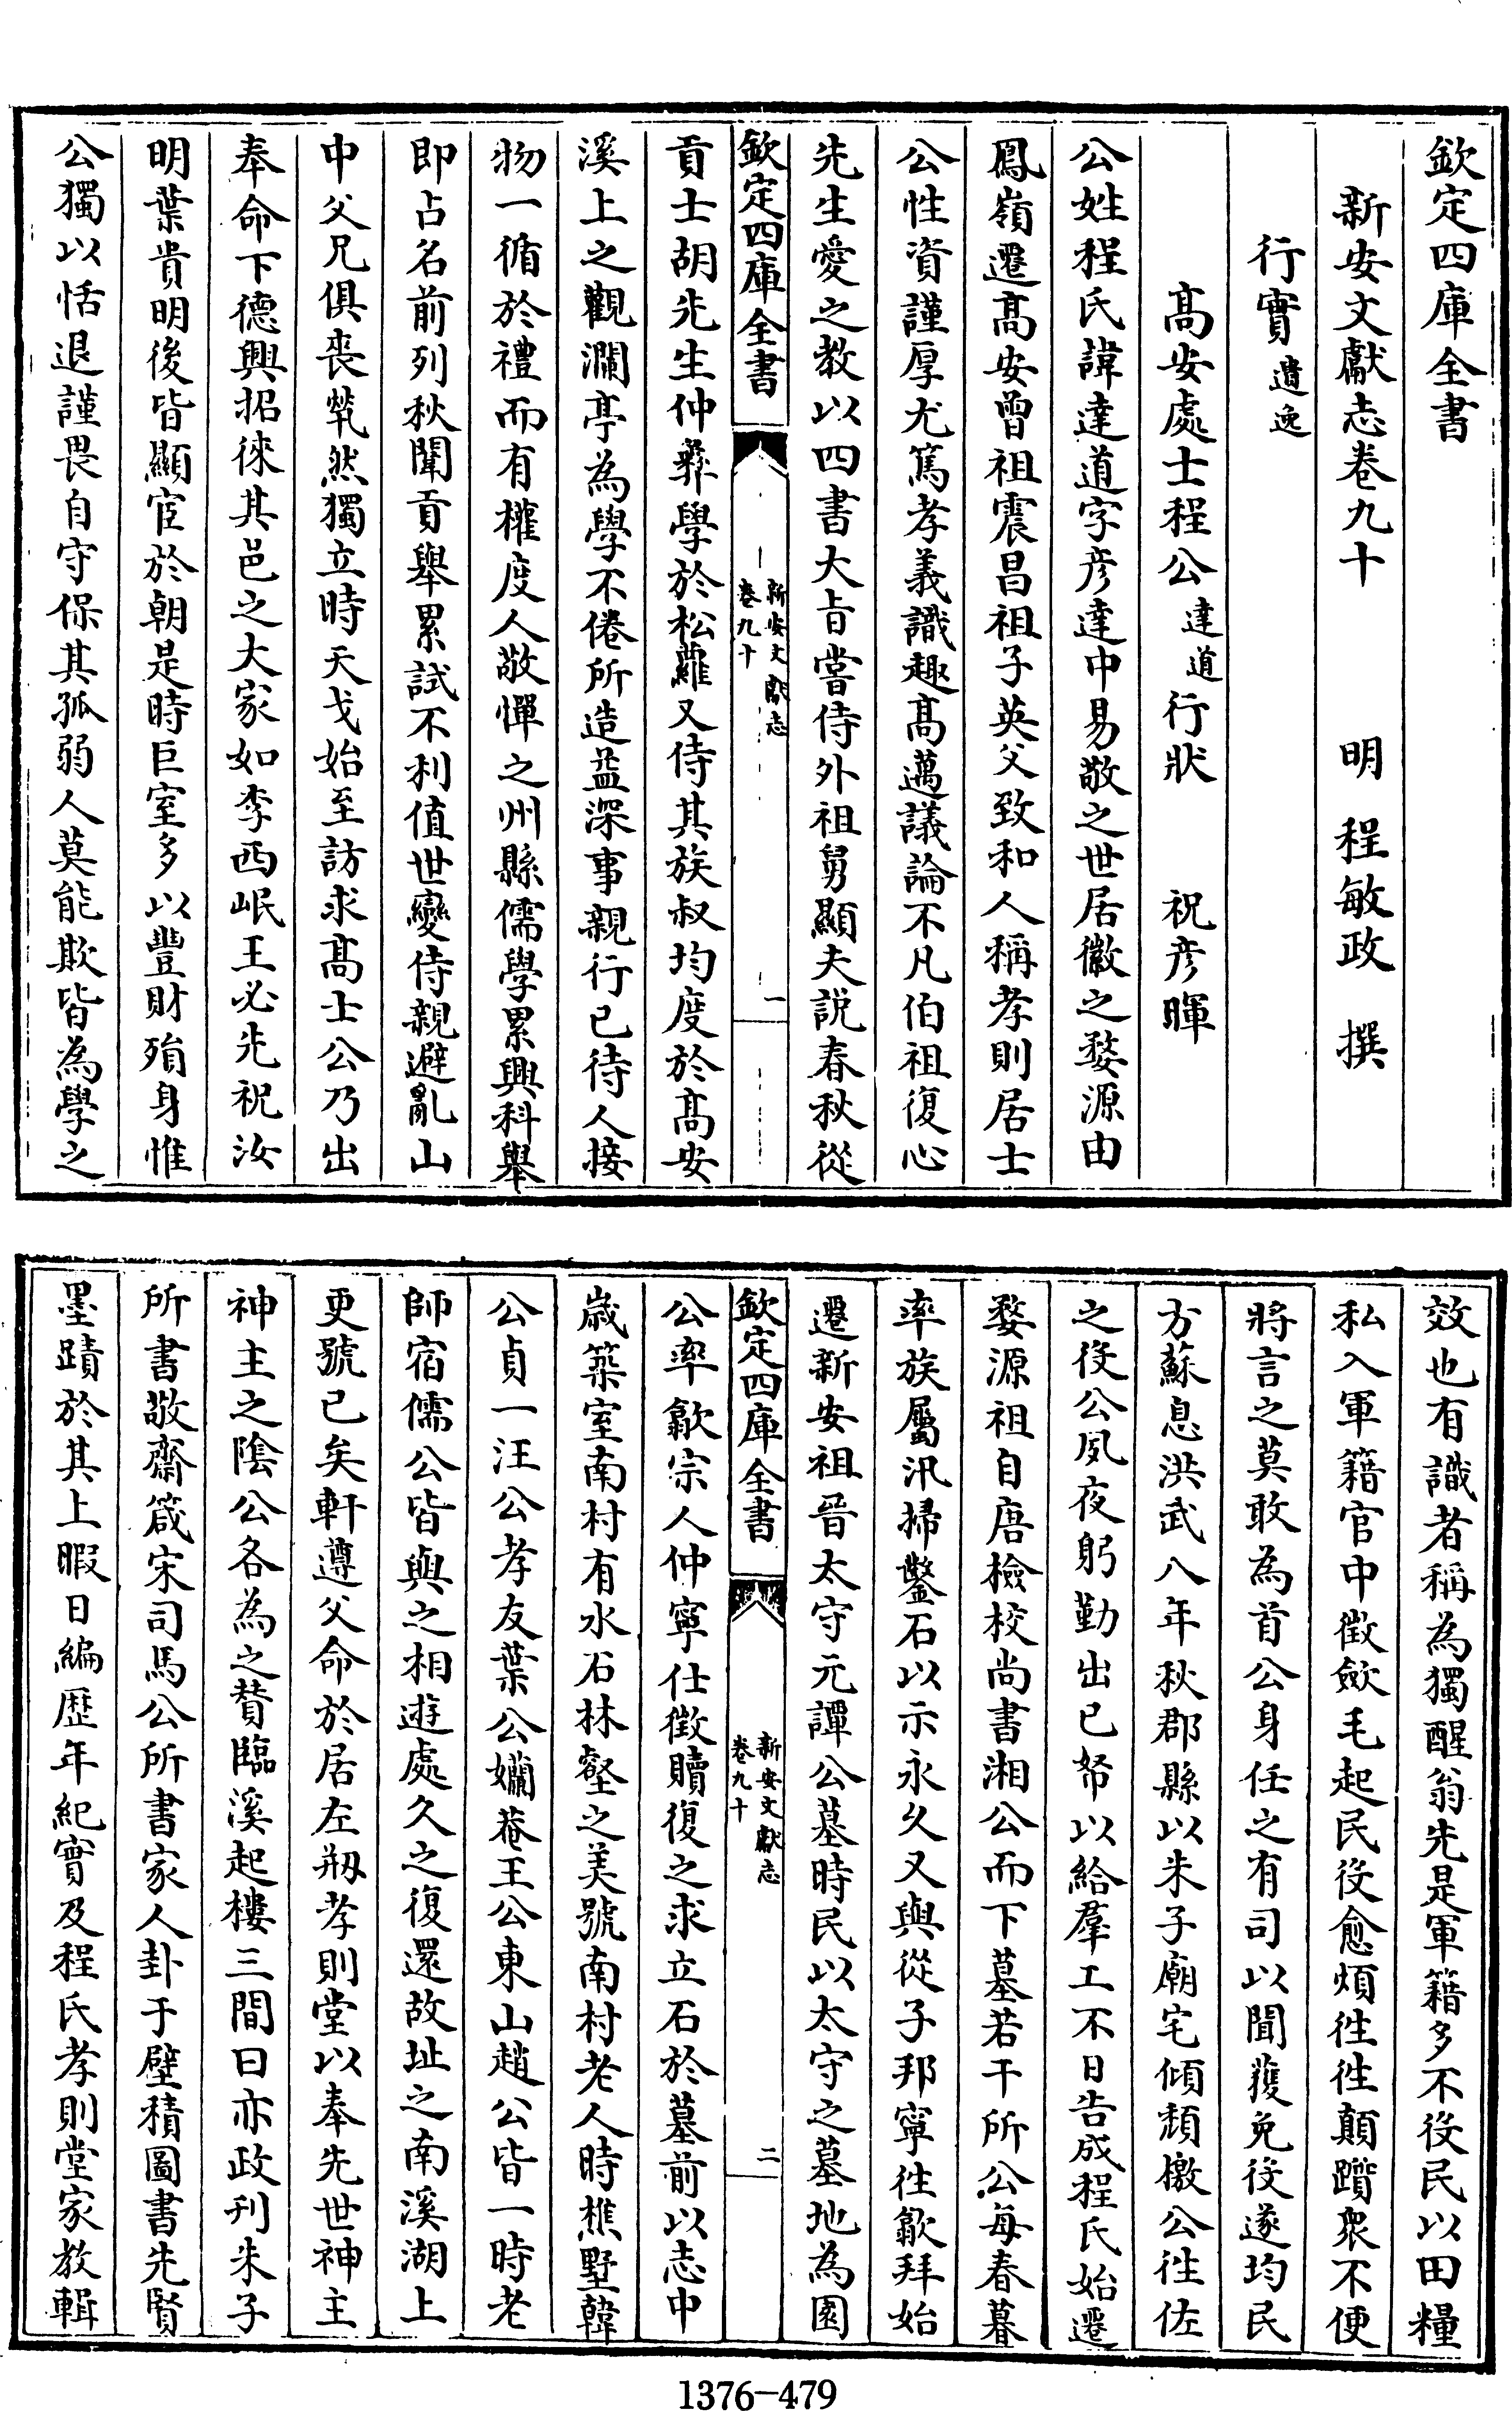 欽定四庫全書
新安文獻志卷九十　明　程敏政　撰
行實遺逸
高安處士程公達道行狀　祝彦暉
公姓程氏諱達道字彦達中易敬之世居徽之婺源由
鳳嶺遷高安曾祖震昌祖子英父致和人稱孝則居士
公性資謹厚尤篤孝義識趣高邁議論不凡伯祖復心
先生愛之教以四書大旨嘗侍外祖舅顯夫說春秋從
欽定四庫全書
新安文獻志
卷九十
一
貢士胡先生仲彝學於松蘿又侍其族叔均度於高安
溪上之觀瀾亭為學不倦所造益深事親行已待人接
物一循於禮而有權度人敬憚之州縣儒學累興科舉
即占名前列秋闈貢舉累試不利值世變侍親避亂山
中父兄俱喪煢然獨立時天戈始至訪求高士公乃出
奉命下德興招徠其邑之大家如李西岷王必先祝汝
明葉貴明後皆顯宦於朝是時巨室多以豐財殞身惟
公獨以恬退謹畏自守保其孤弱人莫能欺皆為學之
效也有識者稱為獨醒翁先是軍籍多不役民以田糧
私入軍籍官中徴斂毛起民役愈煩徃徃顛躓衆不便
將言之莫敢為首公身任之有司以聞䕶免役遂均民
方蘇息洪武八年秋郡縣以朱子廟宅傾頽檄公徃佐
之役公夙夜躬勤出已帑以給羣工不日告成程氏始遷
婺源祖自唐檢校尚書湘公而下墓若干所公每春暮
率族屬汛掃鑿石以示永久又與從子邦寧徃歙拜始
遷新安祖晉太守元譚公墓時民以太守之墓地為園
欽定四庫全書
新安文獻志
卷九十
二
公率歙宗人仲寧仕徴贖復之求立石於墓前以志中
歳築室南村有水石林壑之美號南村老人時樵墅韓
公貞一汪公孝友葉公孏菴王公東山趙公皆一時老
師宿儒公皆與之相遊處久之復還故址之南溪湖上
更號已矣軒遵父命於居左剏孝則堂以奉先世神主
神主之隂公各為之賛臨溪起樓三間曰亦政刋朱子
所書敬齋箴宋司馬公所書家人卦于壁積圖書先賢
墨蹟於其上暇日編歴年紀實及程氏孝則堂家教輯
1376-479